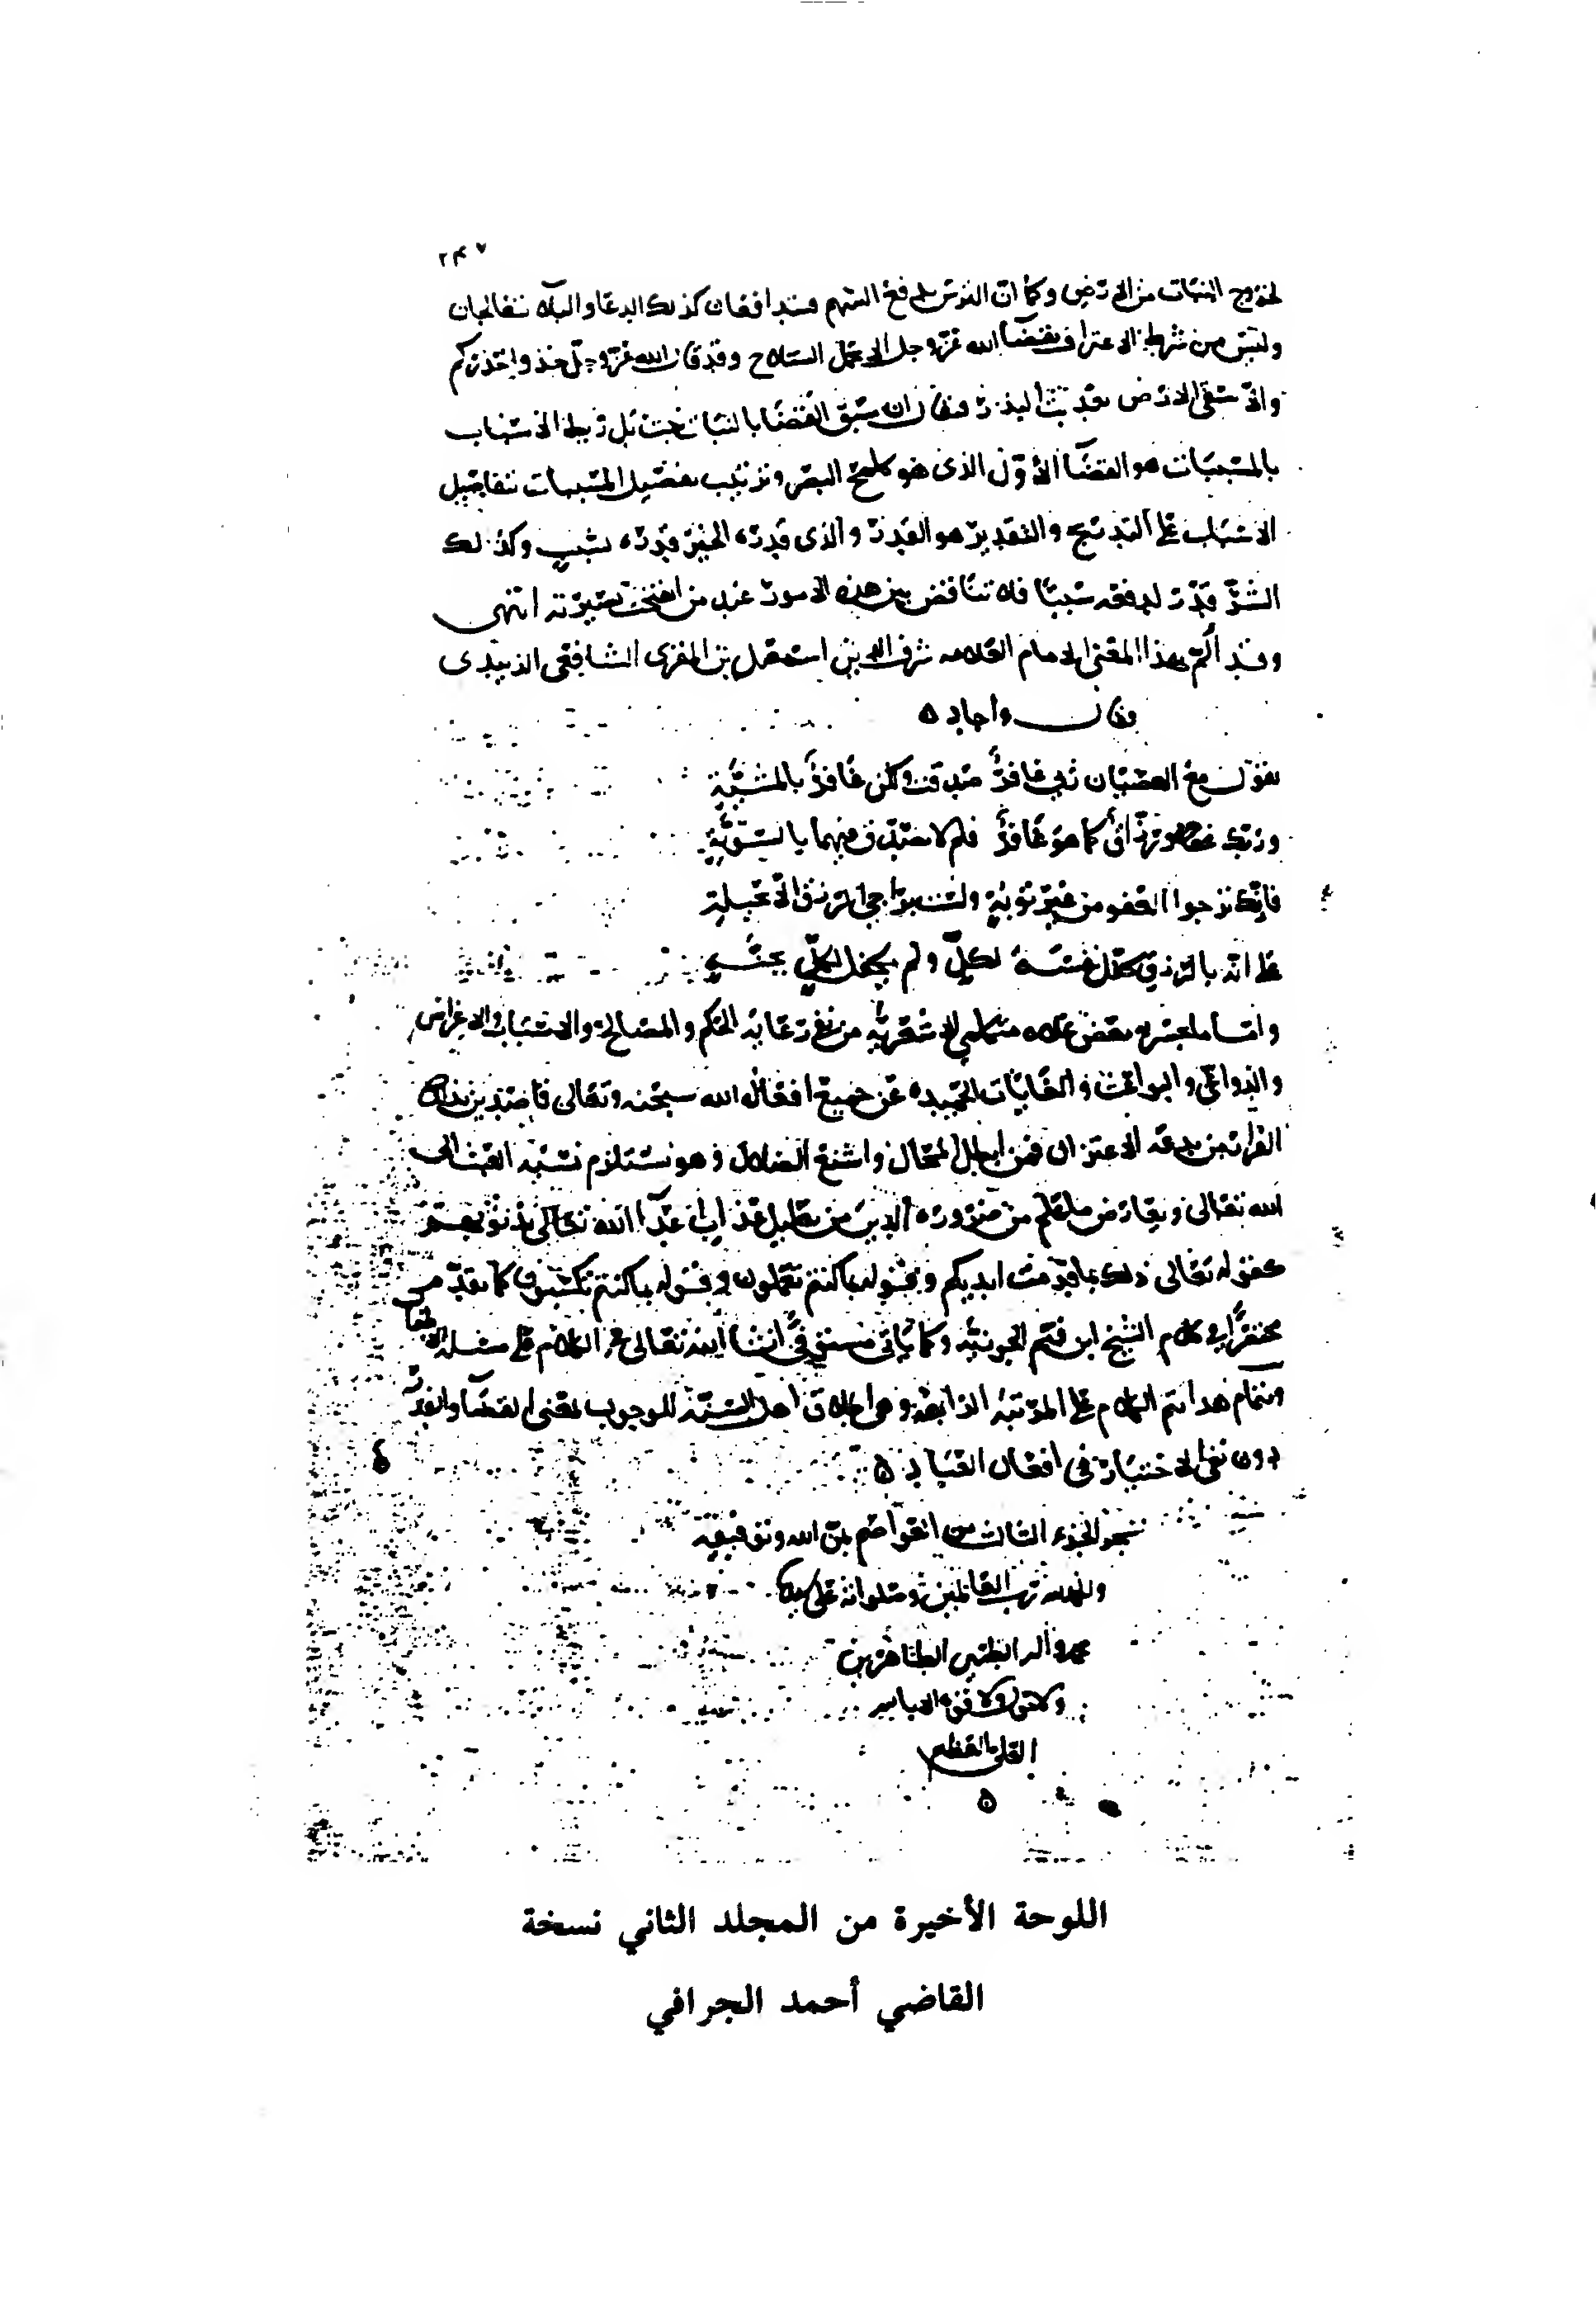 ٢٤٧
لخروج النبات من الارض وكما ان الترس يدفع السهم فيتدافعان كذلك الدعا والبلا يتعالجان
وليس من شرط الاعتراف بقضا الله عز وجل الا يحمل السلاح وقد قال الله عز وجل خذوا حذركم
والا يسقى الارض بعد بث البذر فيقال ان سبق القضا بالنبات نبت بل ربط الاسباب
بالمسببات هو القضا الأول الذي هو كلمح البصر وترتيب تفصيل المسببات تفاصيل
الاسباب على التدريج والتقدير هو القدر والذي قدره الخير قدره بسبب وكذلك
الشر قدر لدفعه سببا فلا تناقض بين هذه الامور عند من انفتحت بصيرته انتهى
وقد ألم بهذا المعنى الامام العلامه شرف الدين اسمعيل بن المقرى الشافعي الزبيدي
وقال وأجاد
تقول مع العصيان ربي غافر صدقت ولكن غافر بالمشية
وربك رزاق كما هو غافر فلم لا تصدق فيهما بالسوية
فانك ترجوا العفو من غير توبة ولست براجي الرزق الا بحيلة
على انه بالرزق كفل نفسه لكل ولم يكفل لكل بجنة
واما بعض متكلمي الاشعرية من نفي رعاية الحكم والمصالح والاسباب والاغراض
والدواعي والبواعث والغايات الحميده عن جميع افعال الله سبحنه وتعالى قاصدين بذلك
الفرار من بدعة الاعتزال فمن ابطل المحال واشنع الضلال وهو يستلزم نسبة العبث الى
الله تعالى ويعارض ما علم من ضرورة الدين من تعليل عذاب اعدا الله تعالى بذنوبهم
كقوله تعالى ذلك بما قدمت ايديكم وبقوله بما كنتم تعملون وقوله بما كنتم تكسبون كما تقدم
مختصرا في كلام الشيخ ابن قيم الجوزية وكما يأتي مستوفى انشا الله تعالى في الكلام على مسئلة
وبتمام هذا تم الكلام على المرتبة الرابعة وهي اطلاق اهل السنة للوجوب لمعنى القضا والقدر
دون نفي الاختيار في افعال العباد
نجز الجزء الثالث من العواصم بمن الله وتوفيقه
والحمد لله رب العالمين وصلواته على
محمد واله الطيبين الطاهرين
ولا حول ولا قوة الا بالله
العلي العظيم
اللوحة الأخيرة من المجلد الثاني نسخة
القاضي أحمد الجرافي